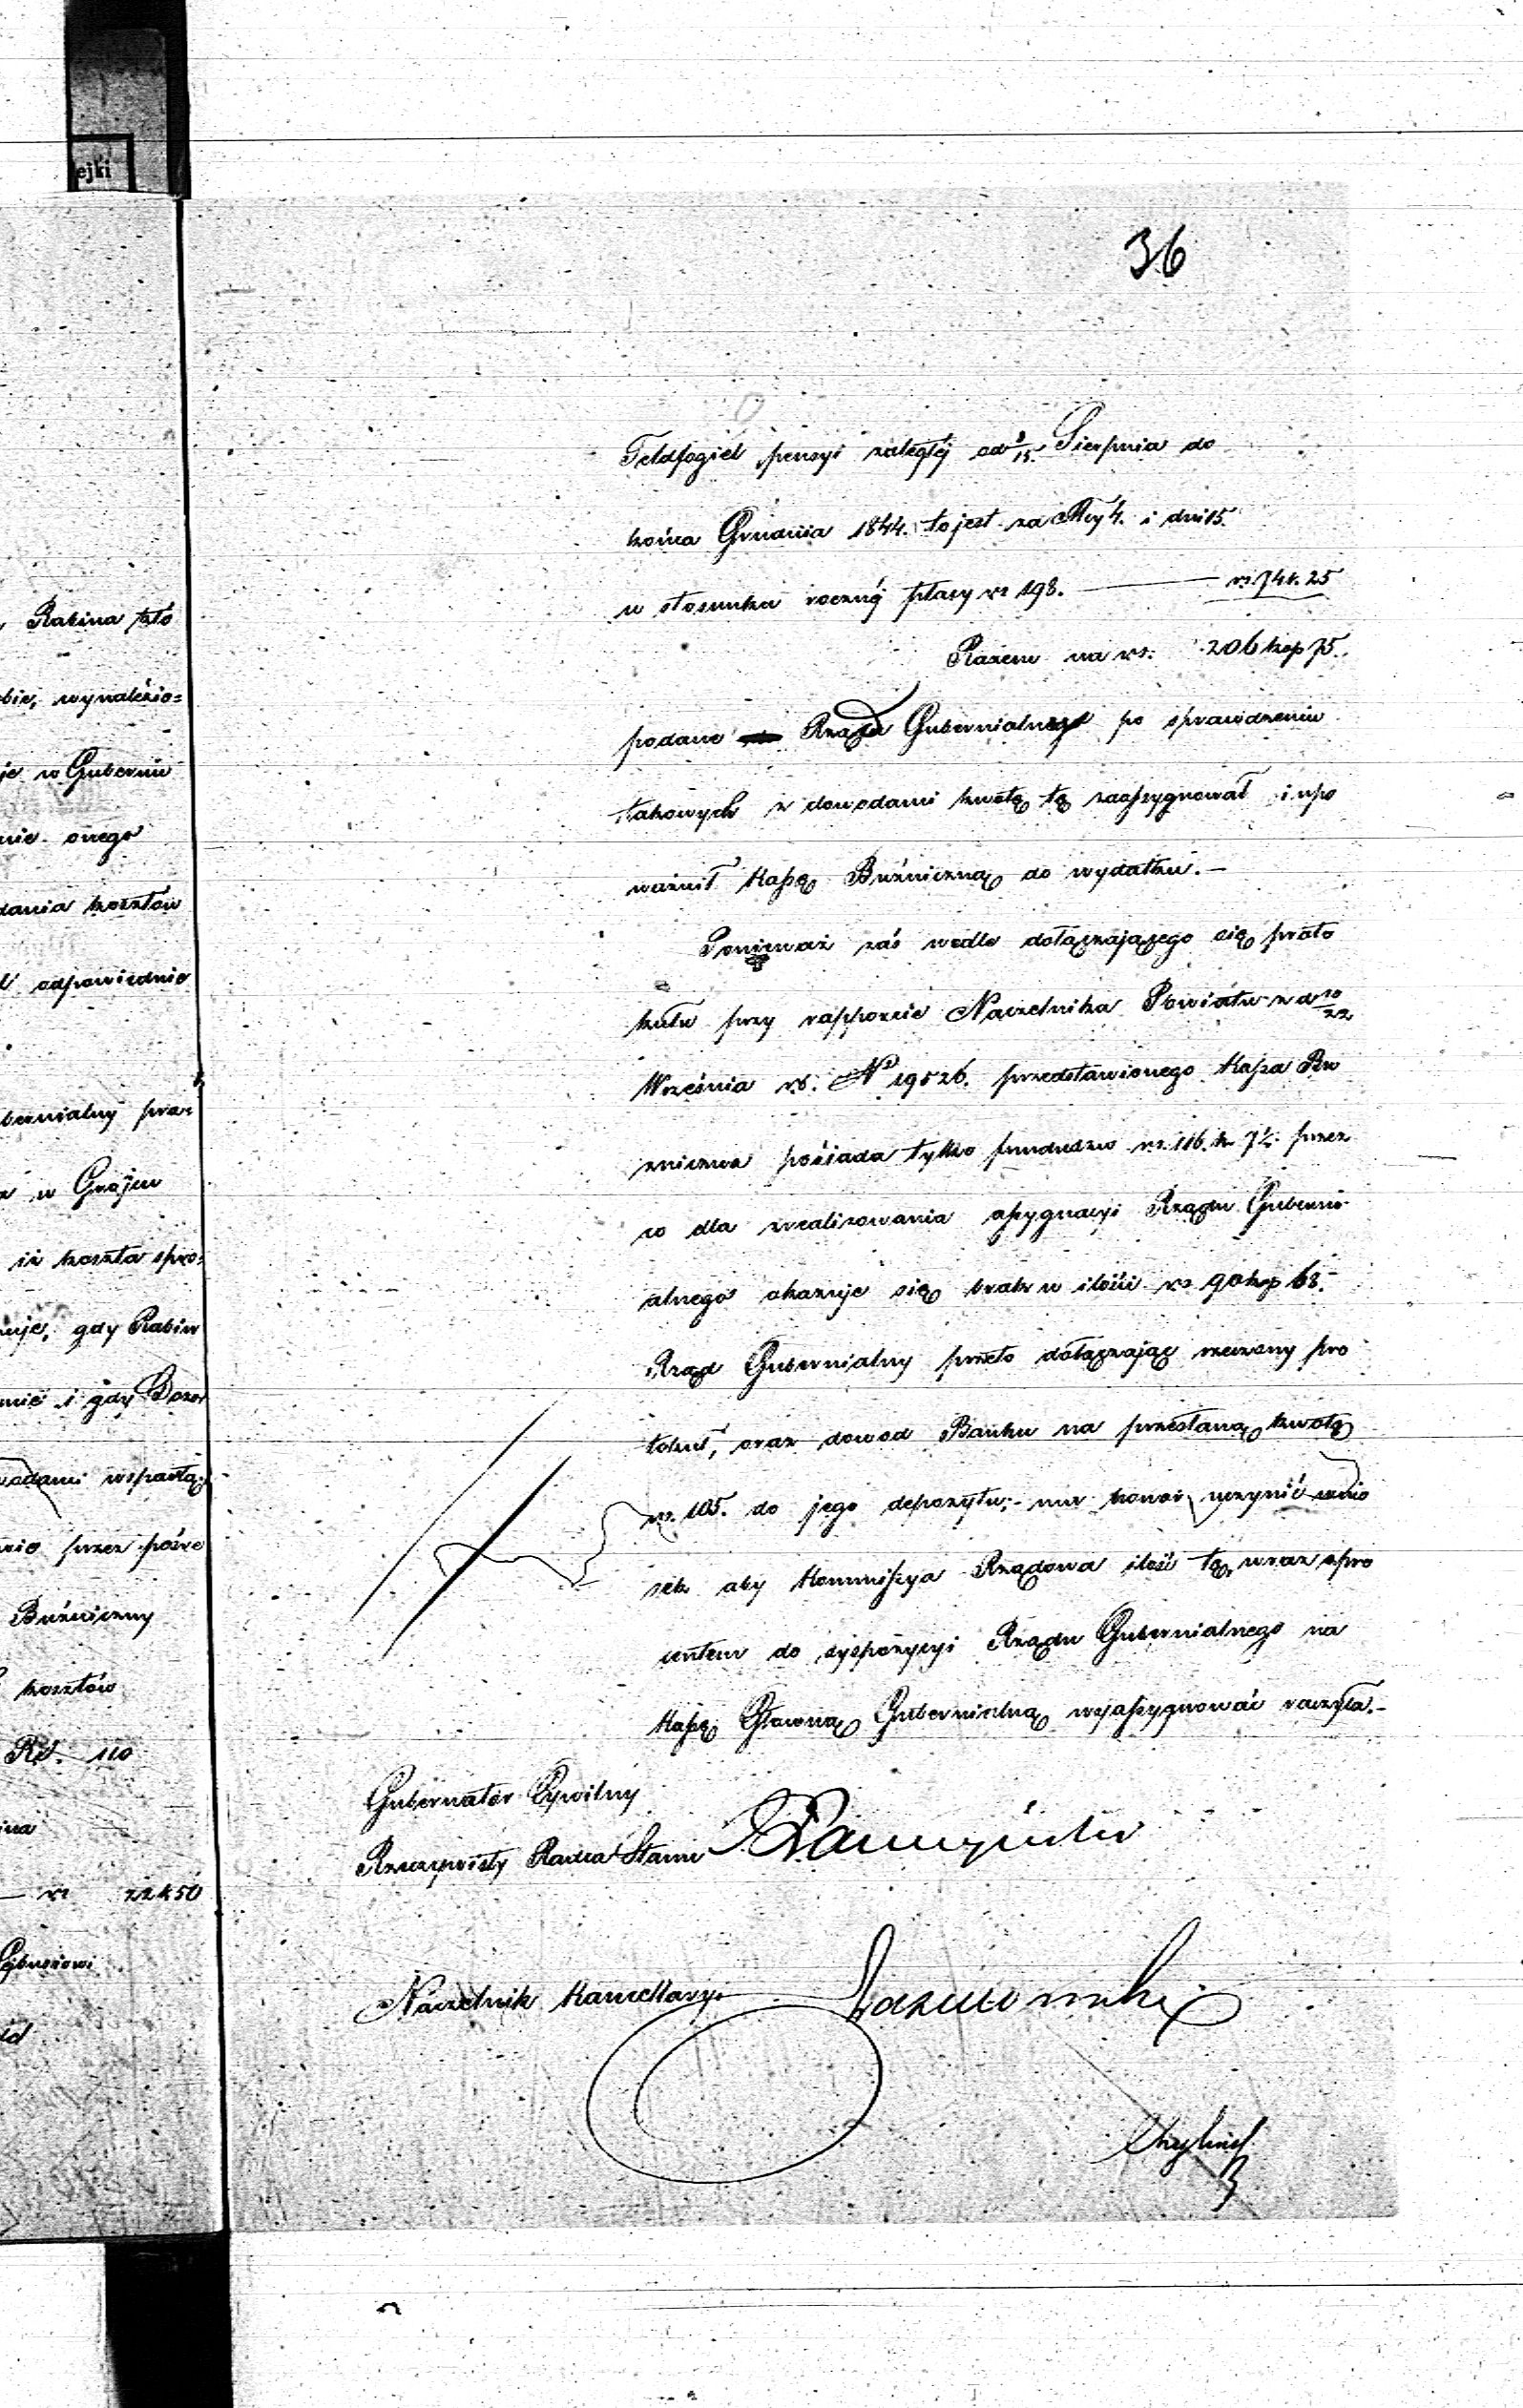 ejki
36
Rabina
bie, wynalezio=
je w Gubernii
nie onego
dania kosztów
odpowiednie
bernialny
w Grójcu
iż koszta spro=
nuje, gdy Rabin
i gdy Dozor
wodami wspartą
przez
Buźniczny
kosztów
Rs. 110
rs 22 k 50
Feldfogiel pensyi zaległéj od 3/15 Sierpnia do
końca Grudnia 1844. to jest za Mcy 4. i dni 15
w stosunku rocznéj płacy rs 198. — rs. 74 k. 25
Razem na rs. 206 kop 75.
podane Rząd Gubernialny po sprawdzeniu
takowych z dowodami kwotę tę zaassygnował i upo
ważnił Kassę Bużniczną do wydatku. —
Ponieważ zaś wedle dołączającego się proto
kułu przy rapporcie Naczelnika Powiatu z d 10/22
Września r.b. No 19526. przedstawionego Kassa Bu
żnicza posiada tylko funduszu rs. 116. k 7. przez
co dla zrealizowania assygnacyi Rządu Guberni
alnego okazuje się brak w ilości rs 90 kop 68.
Rząd Gubernialny przeto dołączając rzeczony pro
tokuł, oraz dowod Banku na przesłaną kwotę
rs. 105. do jego depozytu; — ma honor uczynić wnio
sek aby Kommissya Rządowa ilość tę, wraz z pro
centem do dyspozycyi Rządu Gubernialnego na
Kassę Główną Gubernialną wyassygnować raczyła. —
Gubernator Cywilny
Rzeczywisty Radca Stanu
Naczelnik Kancellaryi